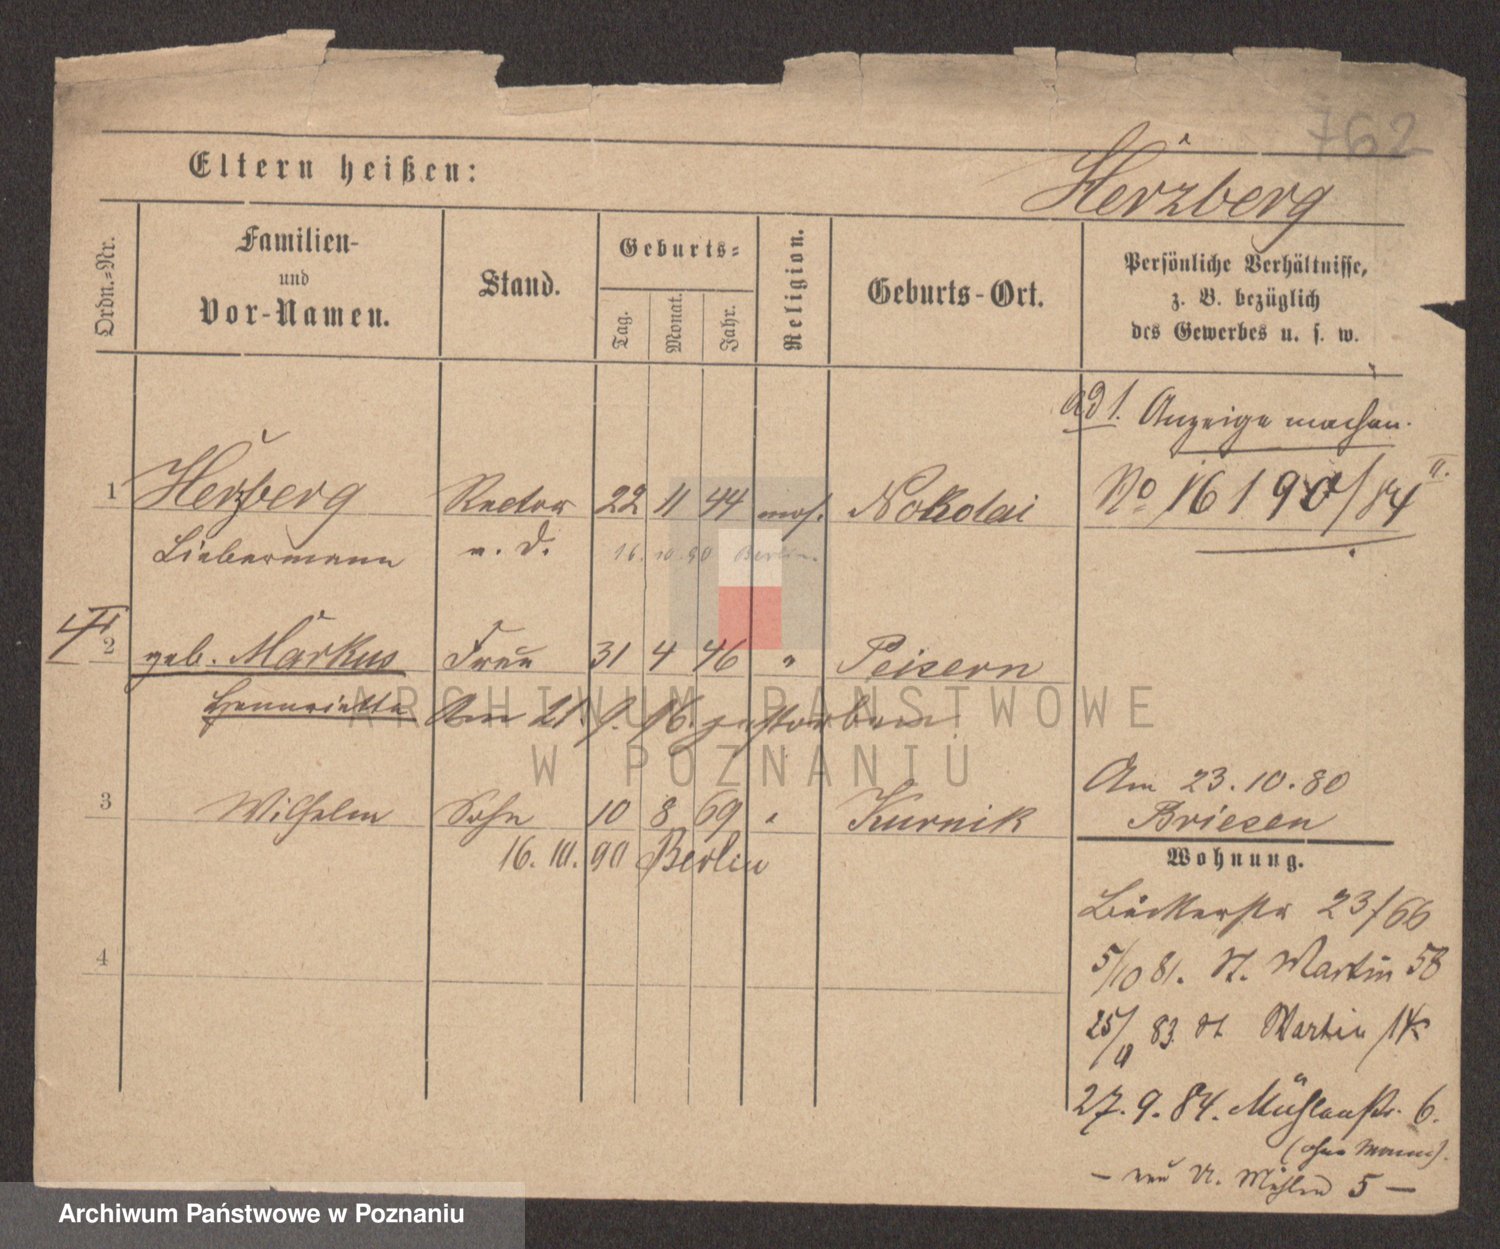 762
Eltern heißen:
Herzberg
Ordn.-Nr.
Familien-
und
Vor-Namen.
Stand.
Geburts-
Tag.
Monat.
Jahr.
Religion.
Geburts-Ort.
Persönliche Verhältnisse,
z. B. bezüglich
des Gewerbes u. s. w.
ad 1. Anzeige machen.
1 Herzberg Rector 22 11 44 mos. Nokolai No 16190/84 II.
Liebermann a. D. 16. 10. 90 Berlin
2 geb. Markus Frau 31 4 46 " Peisern
Hennriette Am 21. 9. 86. gestorben
Am 23.10.80
3 Wilhelm Sohn 10 8 69 " Kurnik Briesen
16. 10. 90 Berlin
Wohnung.
Bäckerstr 23/66
4
5/10 81. St. Martin 58
25/11 83. St Martin 14
27. 9. 84. Mühlenstr. 6.
(ohne Mann).
5 —
ARCHIWUM PAŃSTWOWE
W POZNANIU
Archiwum Państwowe w Poznaniu